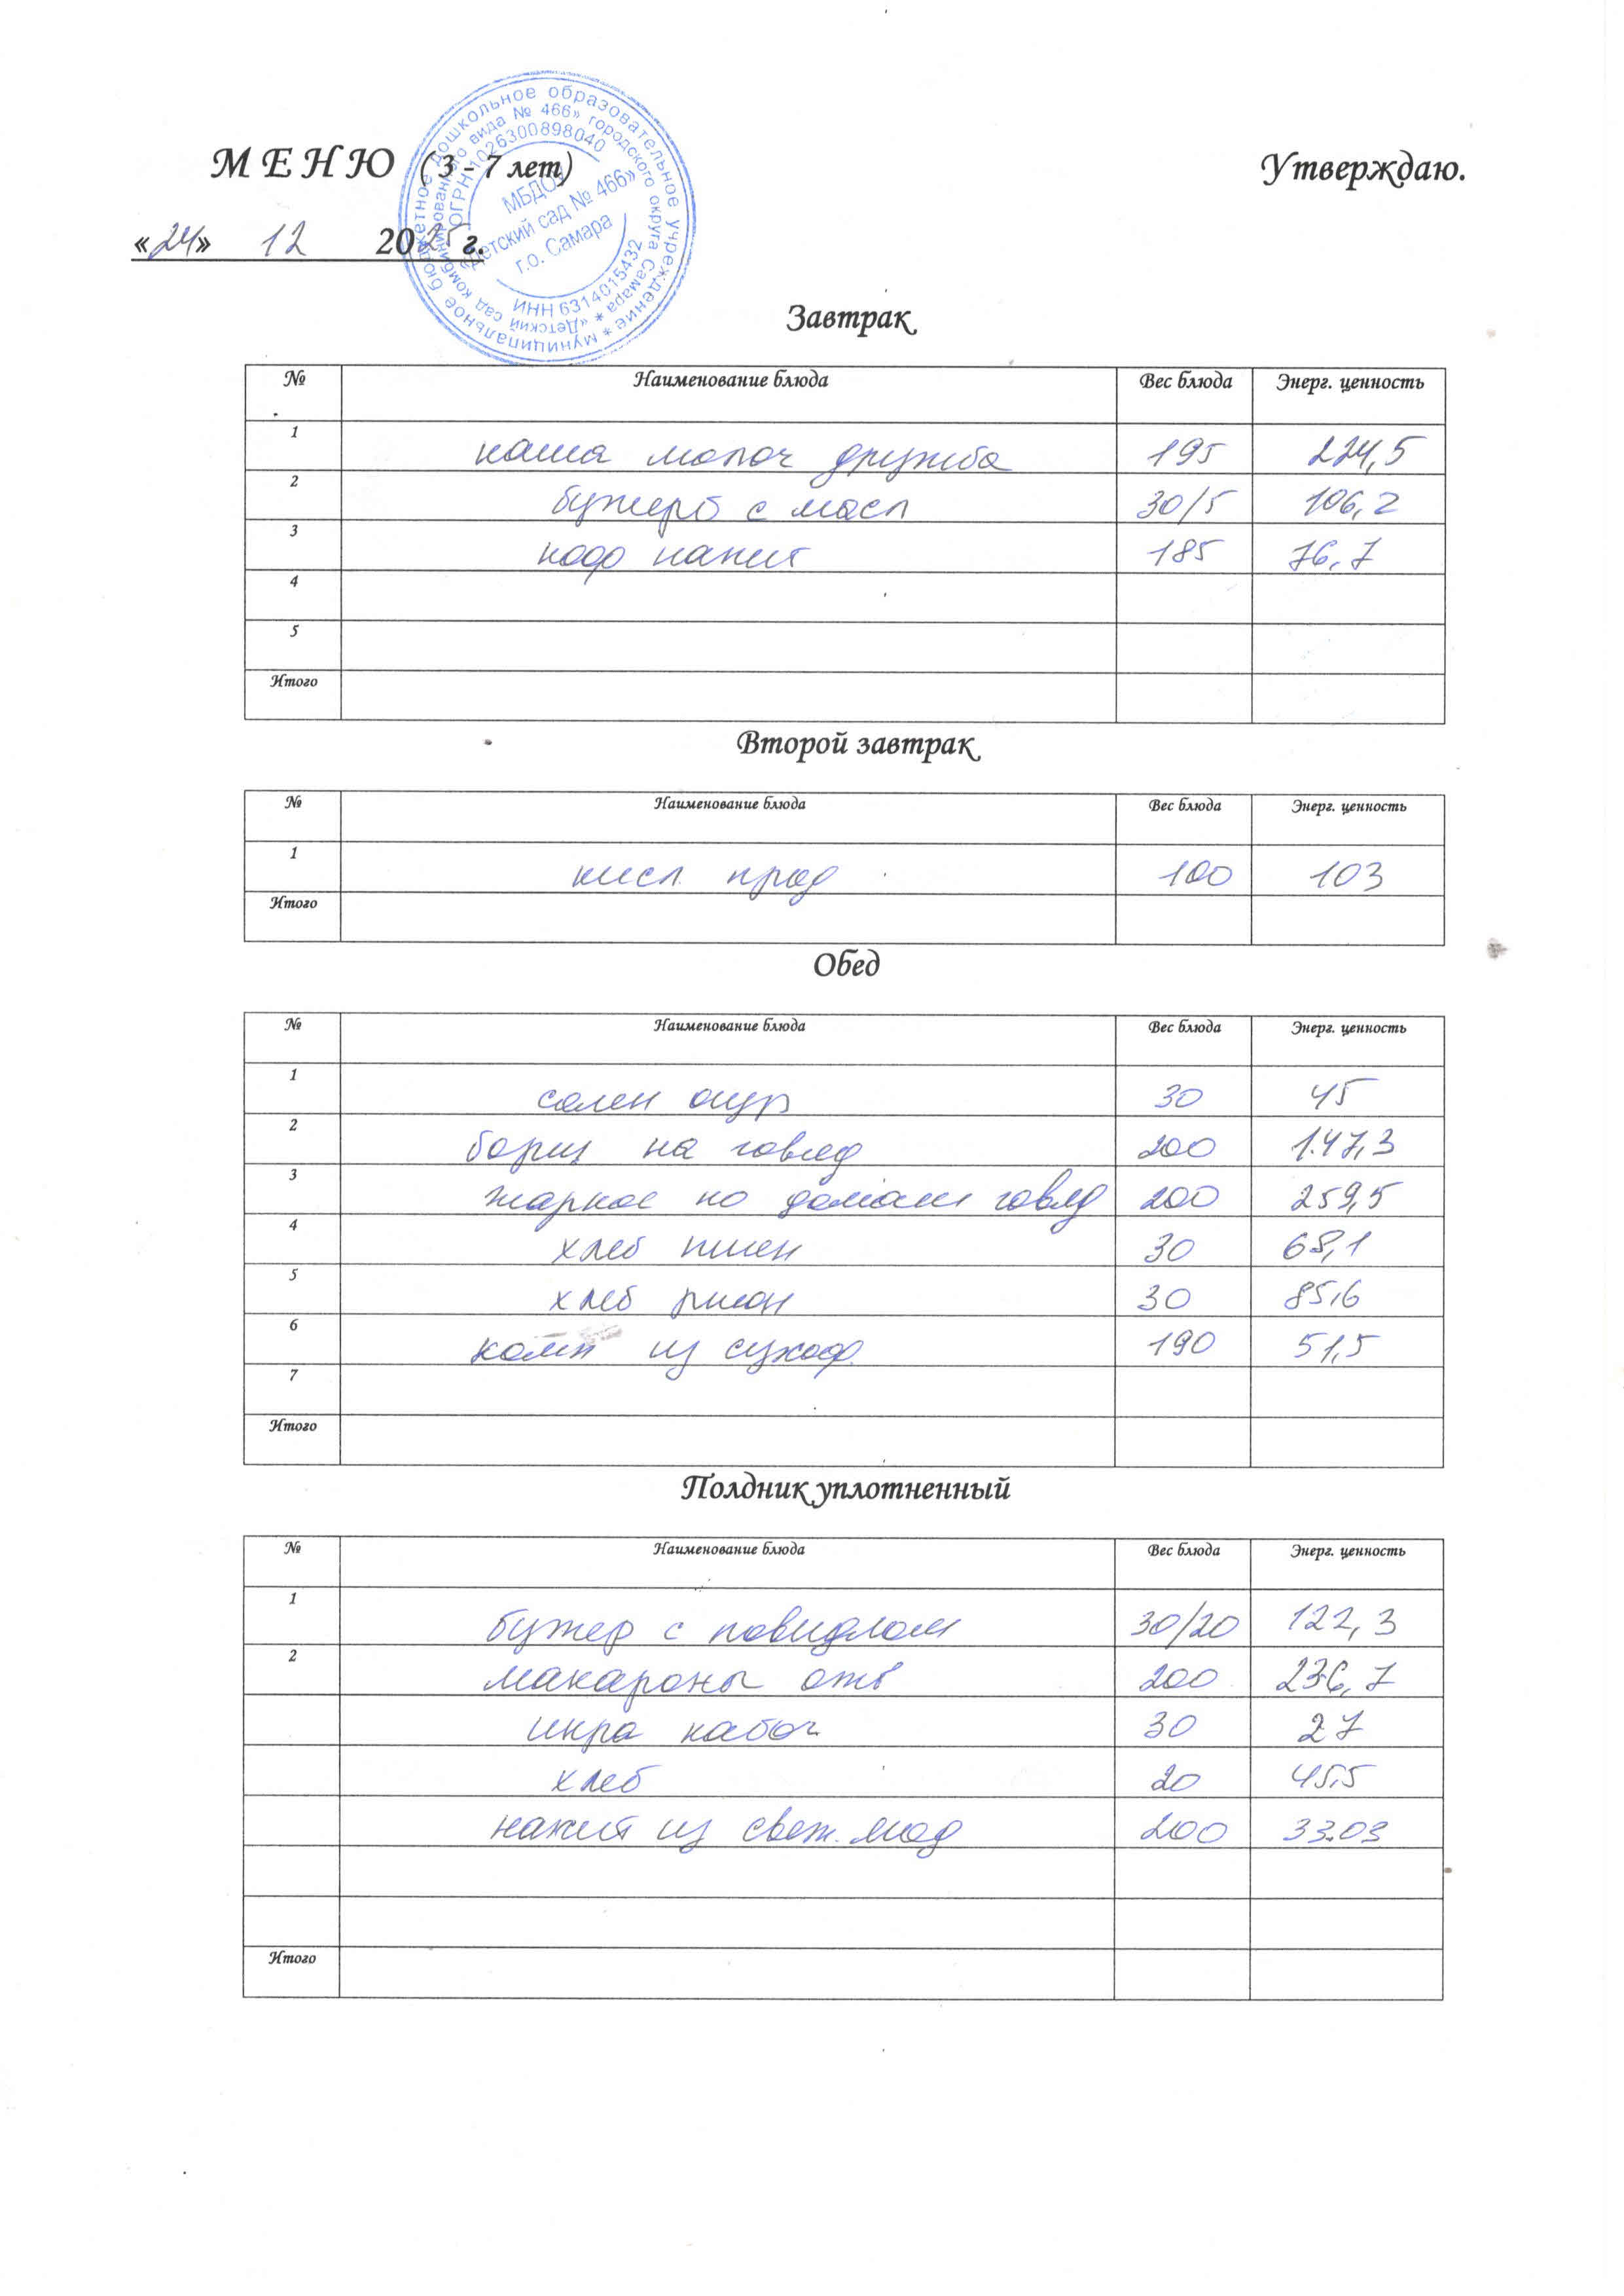 МЕНЮ (3 - 7 лет)
Утверждаю.
«24» 12 2025 г.
муниципальное бюджетное дошкольное образовательное учреждение *
«Детский сад комбинированного вида № 466» городского округа Самара *
ОГРН 1026300898040
МБДОУ
«Детский сад № 466»
г.о. Самара
ИНН 6314015432
Завтрак
№ Наименование блюда Вес блюда Энерг. ценность
1 каша молоч дружба 195 224,5
2 бутерб с масл 30/5 106,2
3 кофе напит 185 76,7
4
5
Итого
Второй завтрак
№ Наименование блюда Вес блюда Энерг. ценность
1 кисл прод 100 103
Итого
Обед
№ Наименование блюда Вес блюда Энерг. ценность
1 солен огур 30 45
2 борщ на говяд 200 147,3
3 жаркое по домашн говяд 200 259,5
4 хлеб пшен 30 68,1
5 хлеб ржан 30 85,6
6 комп из сухоф. 190 51,5
7
Итого
Полдник уплотненный
№ Наименование блюда Вес блюда Энерг. ценность
1 бутер с повидлом 30/20 122,3
2 макароны отв 200 236,7
икра кабач 30 27
хлеб 20 45,5
напит из свеж. 200 33.03
Итого